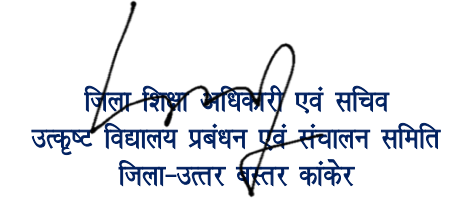 जिला शिक्षा अधिकारी एवं सचिव
उत्कृष्ट विद्यालय प्रबंधन एवं संचालन समिति
जिला-उत्तर बस्तर कांकेर